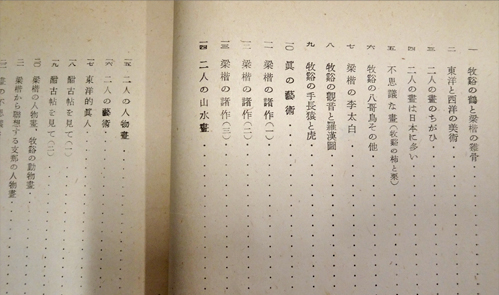 一 牧谿の鶴と梁楷の雞骨
二 東洋と西洋の美術
三 二人の畫のちがひ
四 二人の畫は日本に多い
五 不思議な畫(牧谿の柿と栗)
六 牧谿の八哥鳥その他
七 梁楷の李太白
八 牧谿の觀音と羅漢圖
九 牧谿の手長猿と虎
一〇 眞の藝術
一一 梁楷の諸作(一)
一二 梁楷の諸作(二)
一三 梁楷の諸作(三)
一四 二人の山水畫
一五 二人の人物畫
一六 二人の藝術
一七 東洋的眞人
一八 酣古帖を見て(一)
一九 酣古帖を見て(二)
二〇 梁楷の人物畫、牧谿の動物畫
二一 梁楷から聯想する支那の人物畫